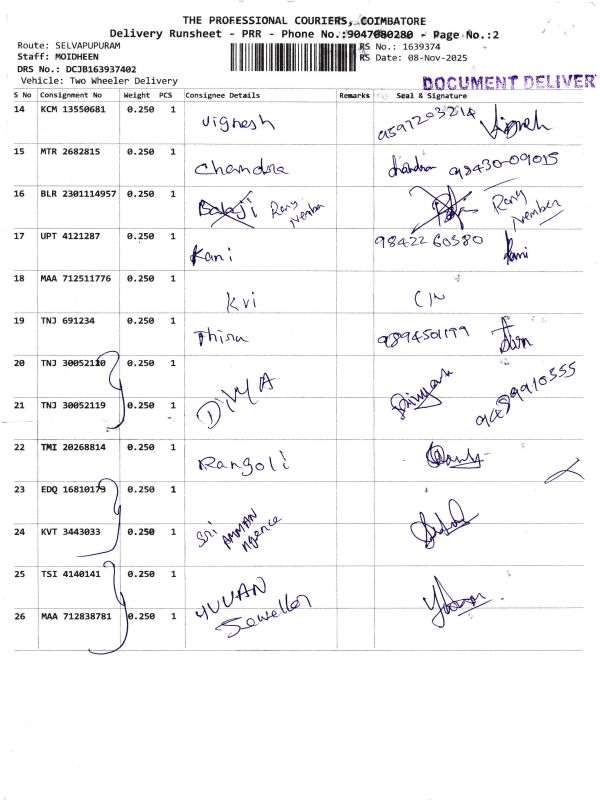 THE PROFESSIONAL COURIERS, COIMBATORE
Delivery Runsheet - PRR - Phone No.:9047080280 - Page No.:2
Route: SELVAPUPURAM
RS No.: 1639374
Staff: MOIDHEEN
RS Date: 08-Nov-2025
DRS No.: DCJB163937402
Vehicle: Two Wheeler Delivery
DOCUMENT DELIVER
S No Consignment No Weight PCS Consignee Details Remarks Seal & Signature
14 KCM 13550681 0.250 1 Vignesh 9597203214 Vignesh
15 MTR 2682815 0.250 1 Chandra Chandra 98430-09015
16 BLR 2301114957 0.250 1 Balaji Rong Number Rong Number
17 UPT 4121287 0.250 1 Kani 9842260380 Kani
18 MAA 712511776 0.250 1 Kvi
19 TNJ 691234 0.250 1 Thira 9894501199
20 TNJ 30052120 0.250 1 DIVYA
21 TNJ 30052119 0.250 1
22 TMI 20268814 0.250 1 Rangoli
23 EDQ 16810179 0.250 1
24 KVT 3443033 0.250 1 Sri AMMAN Agence
25 TSI 4140141 0.250 1 YUVAN
26 MAA 712838781 0.250 1 Jeweller